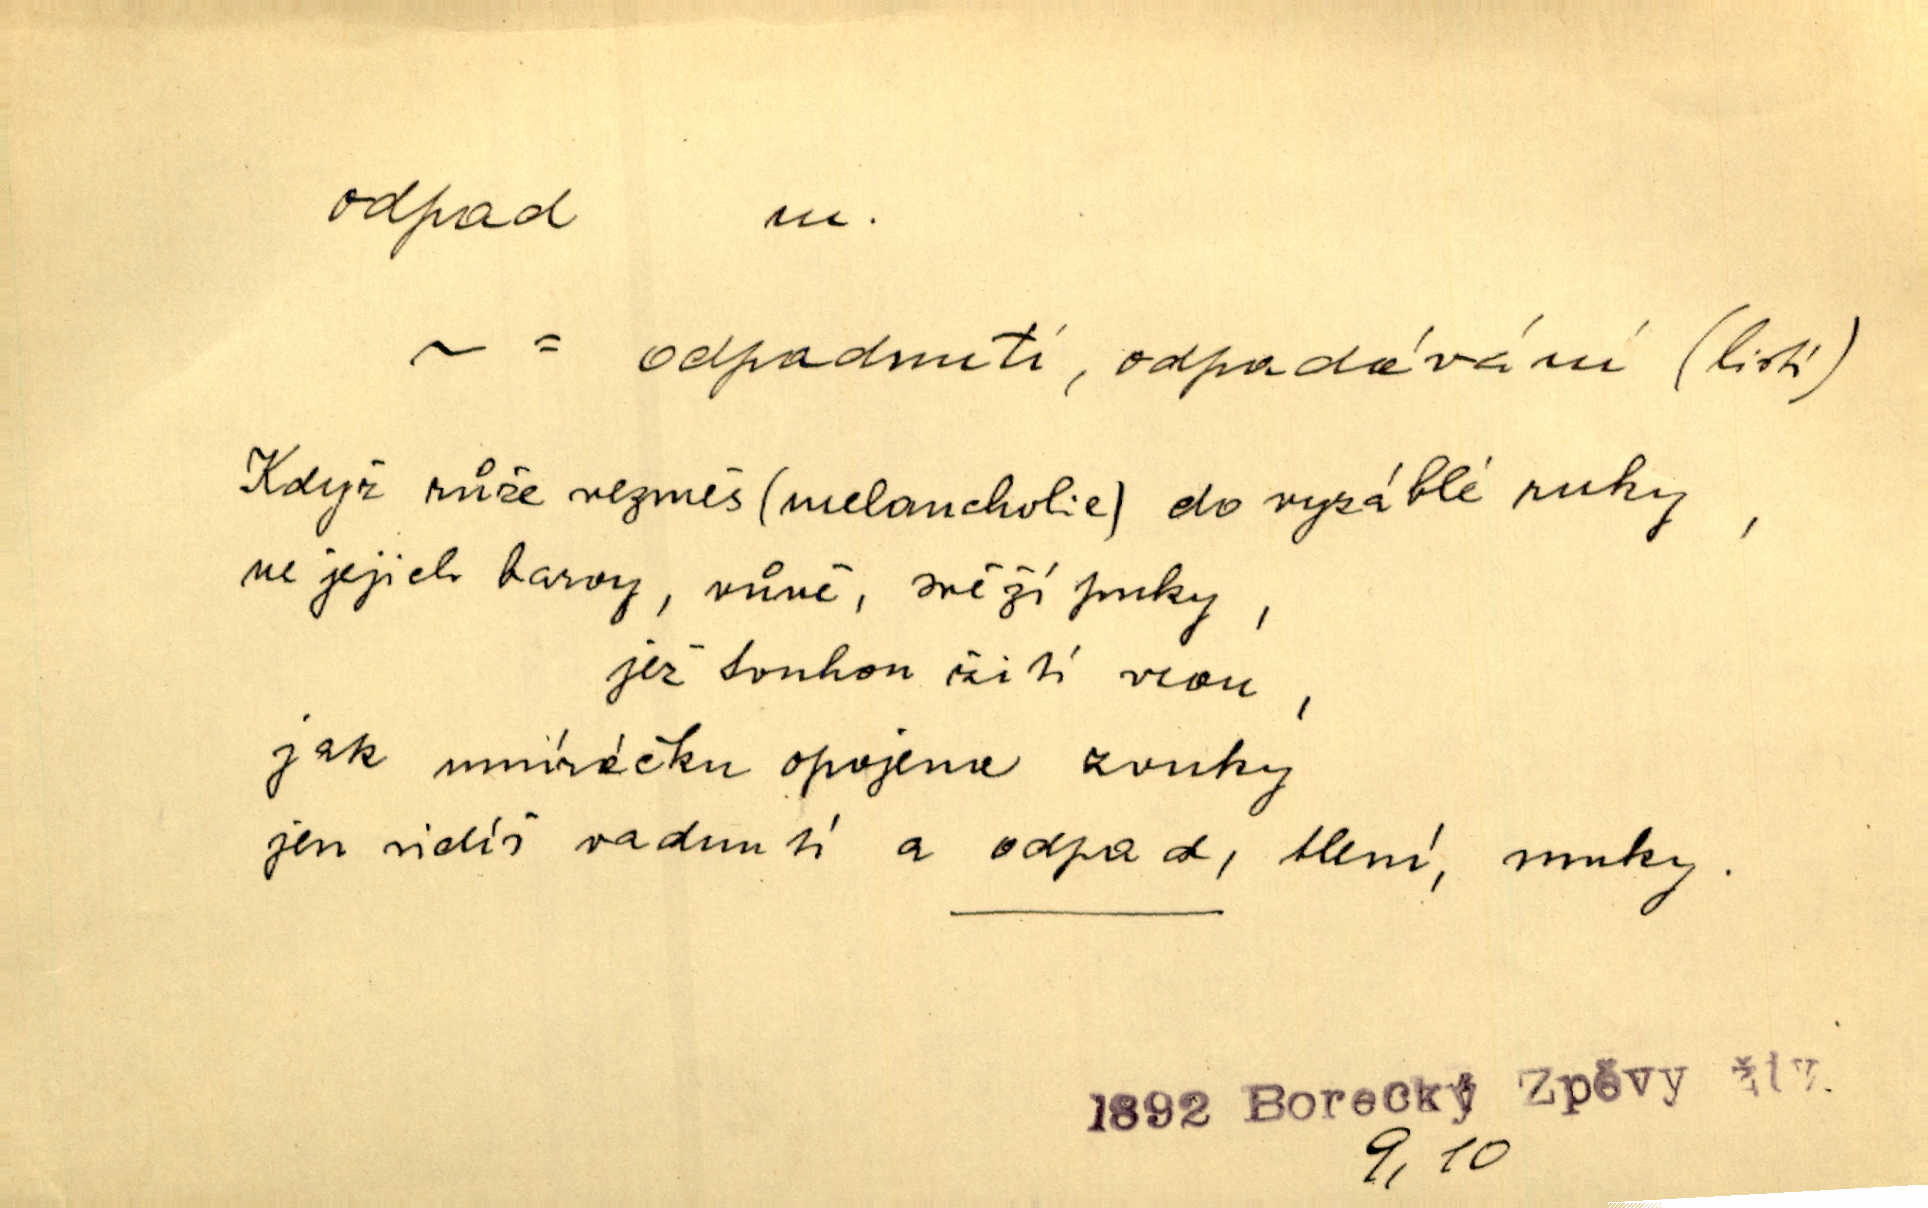 odpad m.
~ = odpadnutí, odpadávání (listí)
Když růže vezmeš (melancholie) do vyzáblé ruky,
ne jejich barvy, vůně, svěží puky,
jež touhou žití vrou,
jak umíráčku opojena zvuky
jen vidíš vadnutí a odpad, tlení, muky.
1892 Borecký Zpěvy živ.
9, 10